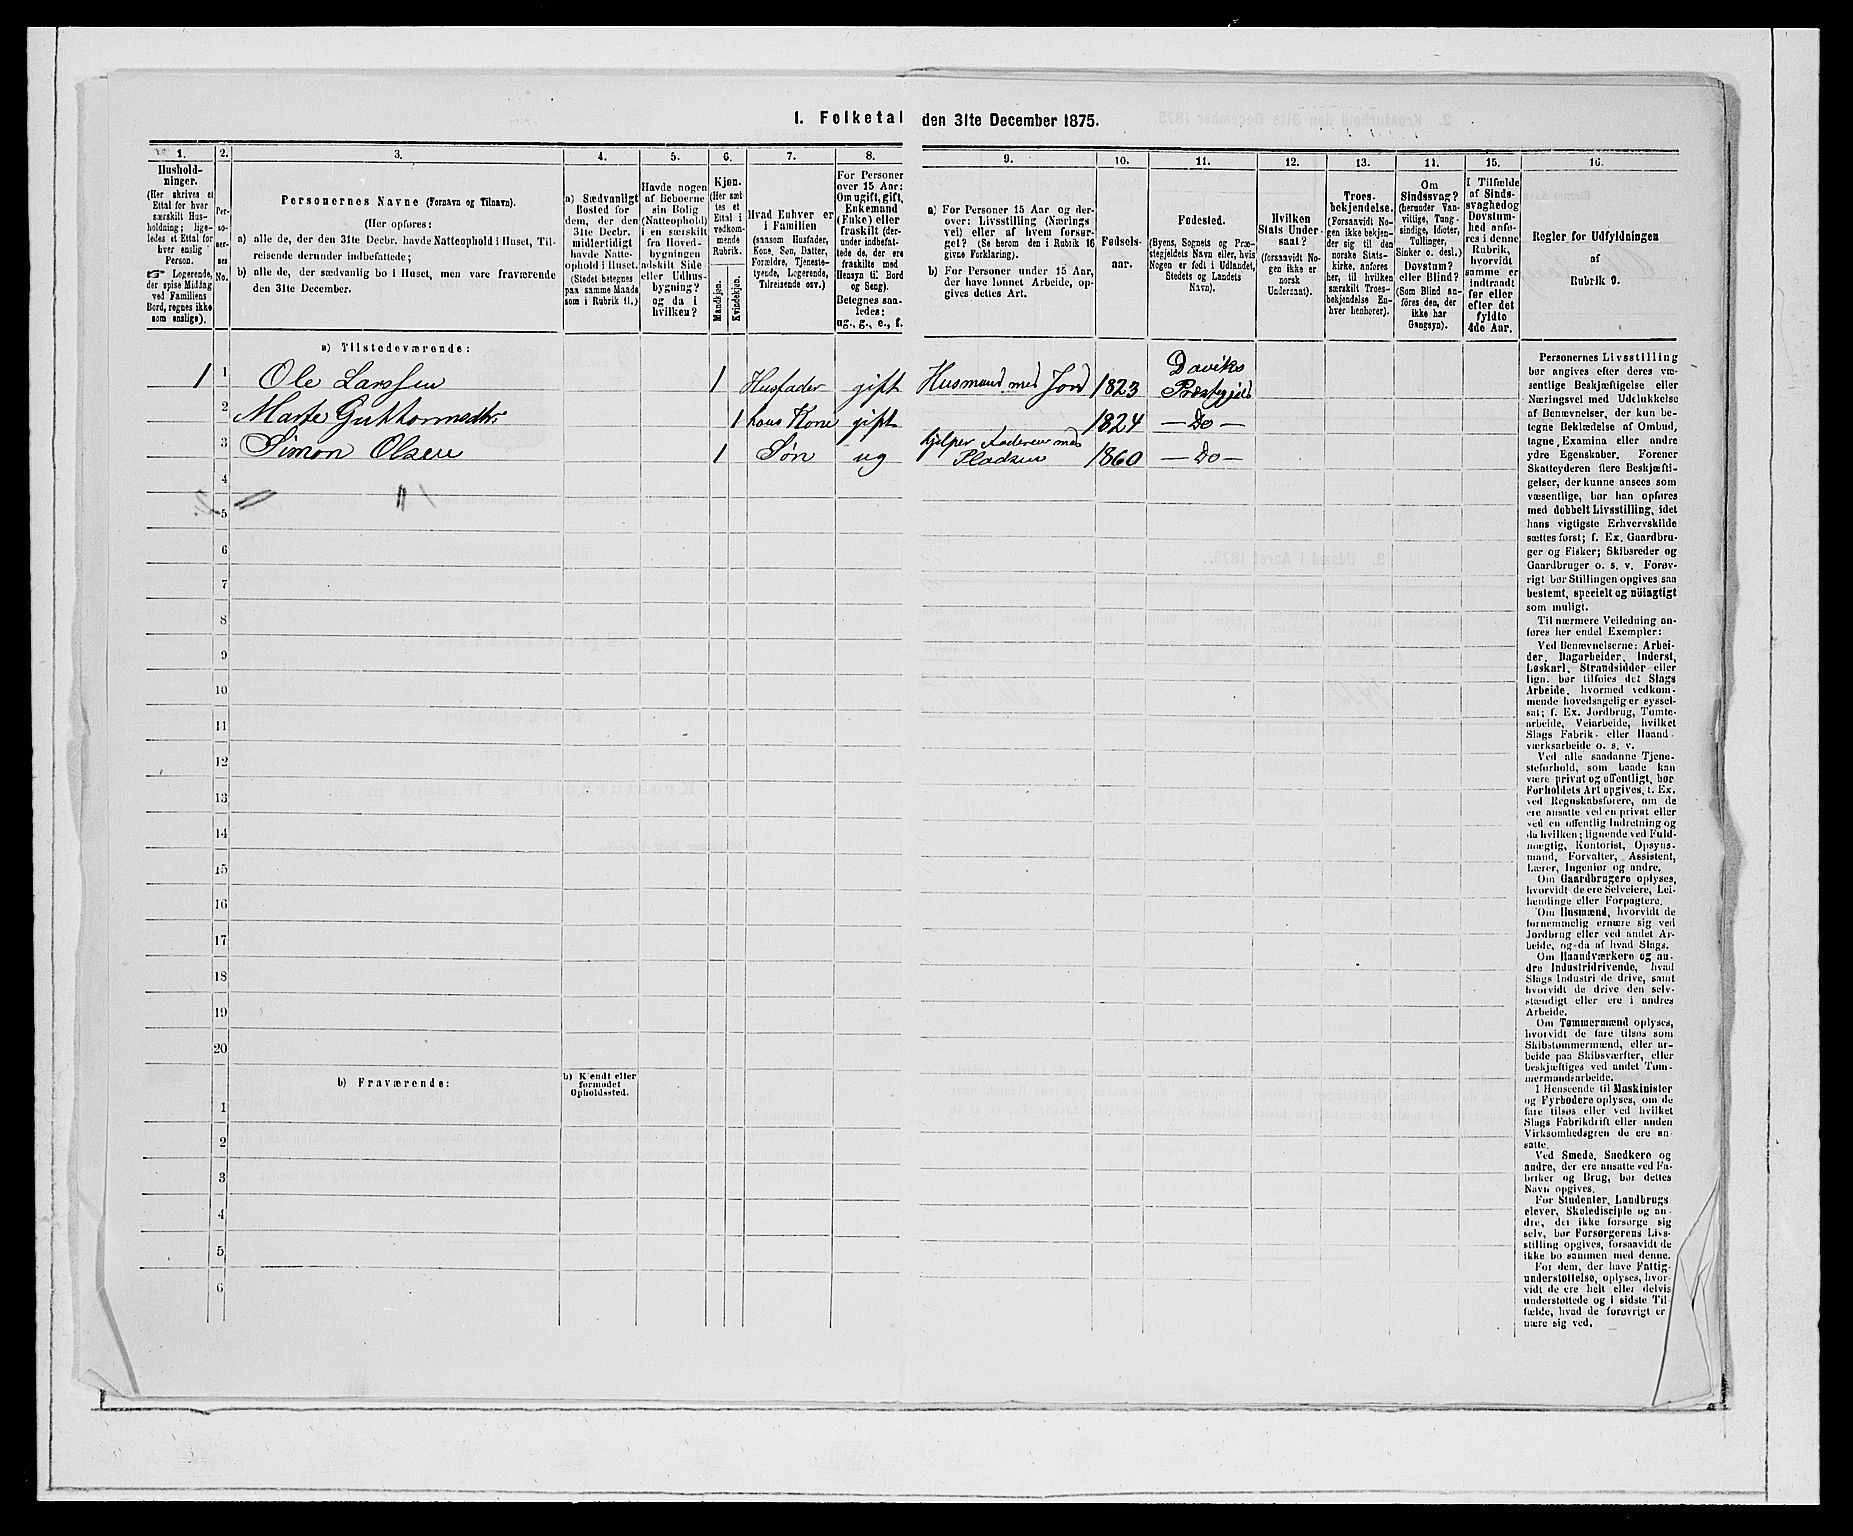 1. Folketal den 31te December 1875.
1.
Hushold-
ninger.
(Her skrives et
Ettal for hver
særskilt Hus-
holdning; lige-
ledes et Ettal for
hver enslig
Person.
☞ Logerende,
der spise Middag
ved Familiens
Bord, regnes ikke
som enslige).
2.
Per-
so-
ner-
nes
No.
3.
Personernes Navne (Fornavn og Tilnavn).
(Her opføres:
a) alle de, der den 31te Decbr. havde Natteophold i Huset, Til-
reisende derunder indbefattede;
b) alle de, der sædvanlig bo i Huset, men vare fraværende
den 31te December.
4.
a) Sædvanligt
Bosted for
dem, der den
31te Decbr.
midlertidigt
havde Natte-
ophold i Huset.
(Stedet betegnes
paa samme Maade
som i Rubrik 11.)
5.
Havde nogen
af Beboerne
sin Bolig
(Natteophold)
i en særskilt
fra Hoved-
bygningen
adskilt Side-
eller Udhus-
bygning?
og da i
hvilken?
6.
Kjøn.
(Her sæt-
tes et
Ettal i
vedkom-
mende
Rubrik.
Mandkjøn.
Kvindekjøn.
7.
Hvad Enhver er
i Familien
(saasom Husfader,
Kone, Søn, Datter,
Forældre, Tjeneste-
tyende, Logerende,
Tilreisende osv.)
8.
For Personer
over 15 Aar:
Om ugift, gift,
Enkemand
(Enke) eller
fraskilt (der-
under indbefat-
tede de, der ere
fraskilte med
Hensyn til Bord
og Seng).
Betegnes saa-
ledes:
ug., g., e., f.
9.
a) For Personer 15 Aar og der-
over: Livsstilling (Nærings-
vei) eller af hvem forsør-
get? (Se herom den i Rubrik 16
givne Forklaring).
b) For Personer under 15 Aar,
der have lønnet Arbeide, op-
gives dettes Art.
10.
Fødsels-
aar.
11.
Fødested.
(Byens, Sognets og Præ-
stegjeldets Navn eller, hvis
Nogen er født i Udlandet,
Stedets og Landets
Navn).
12.
Hvilken
Stats Under-
saat?
(forsaavidt No-
gen ikke er
norsk
Undersaat).
13.
Troes-
bekjendelse.
(Forsaavidt No-
gen ikke bekjen-
der sig til den
norske Stats-
kirke, anføres
her, til hvilken
særskilt Troes-
bekjendelse En-
hver henhører).
14.
Om
Sindssvag?
(herunder Van-
vittige, Tung-
sindige, Idioter,
Tullinger,
Sinker o. desl.)
Døvstum?
eller Blind?
(Som Blind an-
føres den, der
ikke har
Gangsyn).
15.
I Tilfælde
af Sinds-
svaghed og
Døvstum-
hed anfø-
res i denne
Rubrik,
hvorvidt
samme er
indtraadt
før eller
efter det
fyldte
4de Aar.
16.
Regler for Udfyldningen
af
Rubrik 9.
a) Tilstedeværende:
1 1 Ole Larssen 1 Husfader gift Husmand med Jord 1823 Daviks Præstegjeld
2 Marte Guttormsdtr. 1 hans Kone gift 1824 — Do —
3 Simon Olsen 1 Søn ug hjelper Faderen med Pladsen 1860 — Do —
4
5
6
7
8
9
10
11
12
13
14
15
16
17
18
19
20
b) Fraværende:
b) Kjendt eller
formodet
Opholdssted.
1
2
3
4
5
6
Personernes Livsstilling
bør angives efter deres væ-
sentlige Beskjæftigelse eller
Næringsvei med Udelukkelse
af Benævnelser, der kun be-
tegne Beklædelse af Ombud,
tagne Examina eller andre
ydre Egenskaber. Forener
Skatteyderen flere Beskjæfti-
gelser, der kunne ansees som
væsentlige, bør han opføres
med dobbelt Livsstilling, idet
hans vigtigste Erhvervskilde
sættes først; f. Ex. Gaardbru-
ger og Fisker; Skibsreder og
Gaardbruger o. s. v. Forøv-
rigt bør Stillingen opgives saa
bestemt, specielt og nöiagtigt
som muligt.
Til nærmere Veiledning an-
føres her endel Exempler:
Ved Benævnelserne: Arbei-
der, Dagarbeider, Inderst,
Løskarl, Strandsidder eller
lign. bør tilføies det Slags
Arbeide, hvormed vedkom-
mende hovedsagelig er syssel-
sat; f. Ex. Jordbrug, Tomte-
arbeide, Veiarbeide, hvilket
Slags Fabrik- eller Haand-
værksarbeide o. s. v.
Ved alle saadanne Tjene-
steforhold, som baade kan
være privat og offentligt, bør
Forholdets Art opgives, t. Ex.
ved Regnskabsførere, om de
ere ansatte ved en privat eller
ved en offentlig Indretning og
da hvilken; lignende ved Fuld-
mægtig, Kontorist, Opsyns-
mand, Forvalter, Assistent,
Lærer, Ingeniør og andre.
Om Gaardbrugere oplyses,
hvorvidt de ere Selveiere, Lei-
lændinge eller Forpagtere.
Om Husmænd, hvorvidt de
fornemmelig ernære sig ved
Jordbrug eller ved andet Ar-
beide, og da af hvad Slags.
Om Haandværkere og an-
dre Industridrivende, hvad
Slags Industri de drive, samt
hvorvidt de drive den selv-
stændigt eller ere i andres
Arbeide.
Om Tømmermænd oplyses,
hvorvidt de fare tilsøs som
Skibstømmermænd, eller ar-
beide paa Skibsværfter, eller
beskjæftiges ved andet Tøm-
mermandsarbeide.
I Henseende til Maskinister
og Fyrbødere oplyses, om de
fare tilsøs eller ved hvilket
Slags Fabrikdrift eller anden
Virksomhedsgren de ere an-
satte.
Ved Smede, Snedkere og
andre, der ere ansatte ved Fa-
briker og Brug, bør dettes
Navn opgives.
For Studenter, Landbrugs-
elever, Skoledisciple og an-
dre, der ikke forsørge sig
selv, bør Forsørgerens Livs-
stilling opgives, forsaavidt de
ikke bo sammen med denne.
For dem, der have Fattig-
understøttelse, oplyses, hvor-
vidt de ere helt eller delvis
understøttede og i sidste Til-
fælde, hvad de forøvrigt er-
nære sig ved.